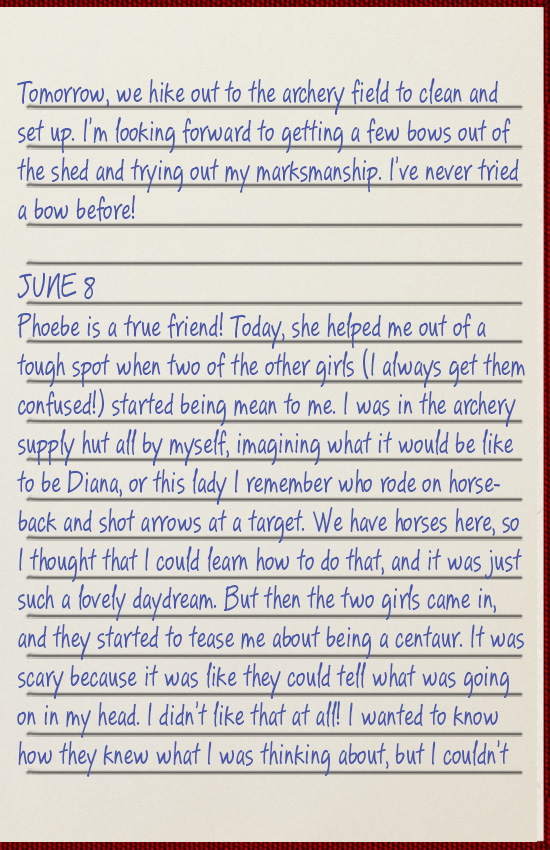 Tomorrow, we hike out to the archery field to clean and
set up. I'm looking forward to getting a few bows out of
the shed and trying out my marksmanship. I've never tried
a bow before!
JUNE 8
Phoebe is a true friend! Today, she helped me out of a
tough spot when two of the other girls (I always get them
confused!) started being mean to me. I was in the archery
supply hut all by myself, imagining what it would be like
to be Diana, or this lady I remember who rode on horse-
back and shot arrows at a target. We have horses here, so
I thought that I could learn how to do that, and it was just
such a lovely daydream. But then the two girls came in,
and they started to tease me about being a centaur. It was
scary because it was like they could tell what was going
on in my head. I didn't like that at all! I wanted to know
how they knew what I was thinking about, but I couldn't